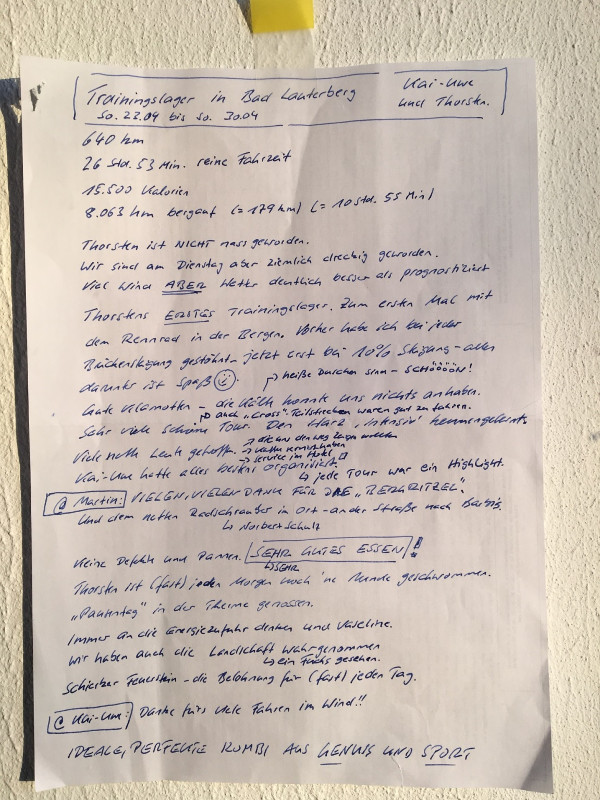 Trainingslager in Bad Lauterberg
Kai-Uwe und Thorsten.
So. 23.04 bis So. 30.04
640 km
26 Std. 53 Min. reine Fahrzeit
15.500 Kalorien
8.063 hm bergauf (= 179 km) (= 10 Std. 55 Min)
Thorsten ist NICHT nass geworden.
Wir sind am Dienstag aber ziemlich dreckig geworden.
Viel Wind ABER Wetter deutlich besser als prognostiziert
Thorstens ERSTES Trainingslager. Zum ersten Mal mit
dem Rennrad in der Bergen. Vorher habe ich bei jeder
Brückensteigung gestöhnt - jetzt erst bei 10% Steigung - alles
darunter ist Spaß ☺
→ heiße Duschen sind - SCHÖÖÖÖN!
Gute Klamotten - die Kälte konnte uns nichts anhaben.
→ auch "Cross"-Teilstrecken waren gut zu fahren.
Sehr viele schöne Tour. Den Harz "intensiv" kennengelernt.
Viele nette Leute getroffen.
→ die uns den Weg zeigen wollten
→ Kette
→ Service im Hotel
Kai-Uwe hatte alles bestens organisiert.
→ jede Tour war ein Highlight.
@ Martin: VIELEN, VIELEN DANK FÜR DAS "BERGRITZEL".
Und dem netten Radschrauber in Ort - an der Straße nach Barbis,
→ Norbert Schulz
Keine Defekte und Pannen. SEHR GUTES ESSEN!!
→ SEHR
Thorsten ist (fast) jeden Morgen noch 'ne Runde geschwommen.
"Pausentag" in der Therme genossen.
Immer an die Energiezufuhr denken und Vaseline.
Wir haben auch die Landschaft wahrgenommen
→ ein Fuchs gesehen.
Schierker Feuerstein - die Belohnung für (fast) jeden Tag.
@ Kai-Uwe: Danke fürs viele Fahren im Wind!!
IDEALE, PERFEKTE KOMBI AUS GENUSS UND SPORT